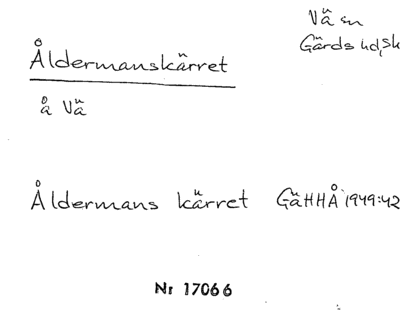 Vä sn
Gärds hd, sk
Åldermanskärret
å Vä
Åldermans kärret GäHHÅ 1949:42
Nr 17066